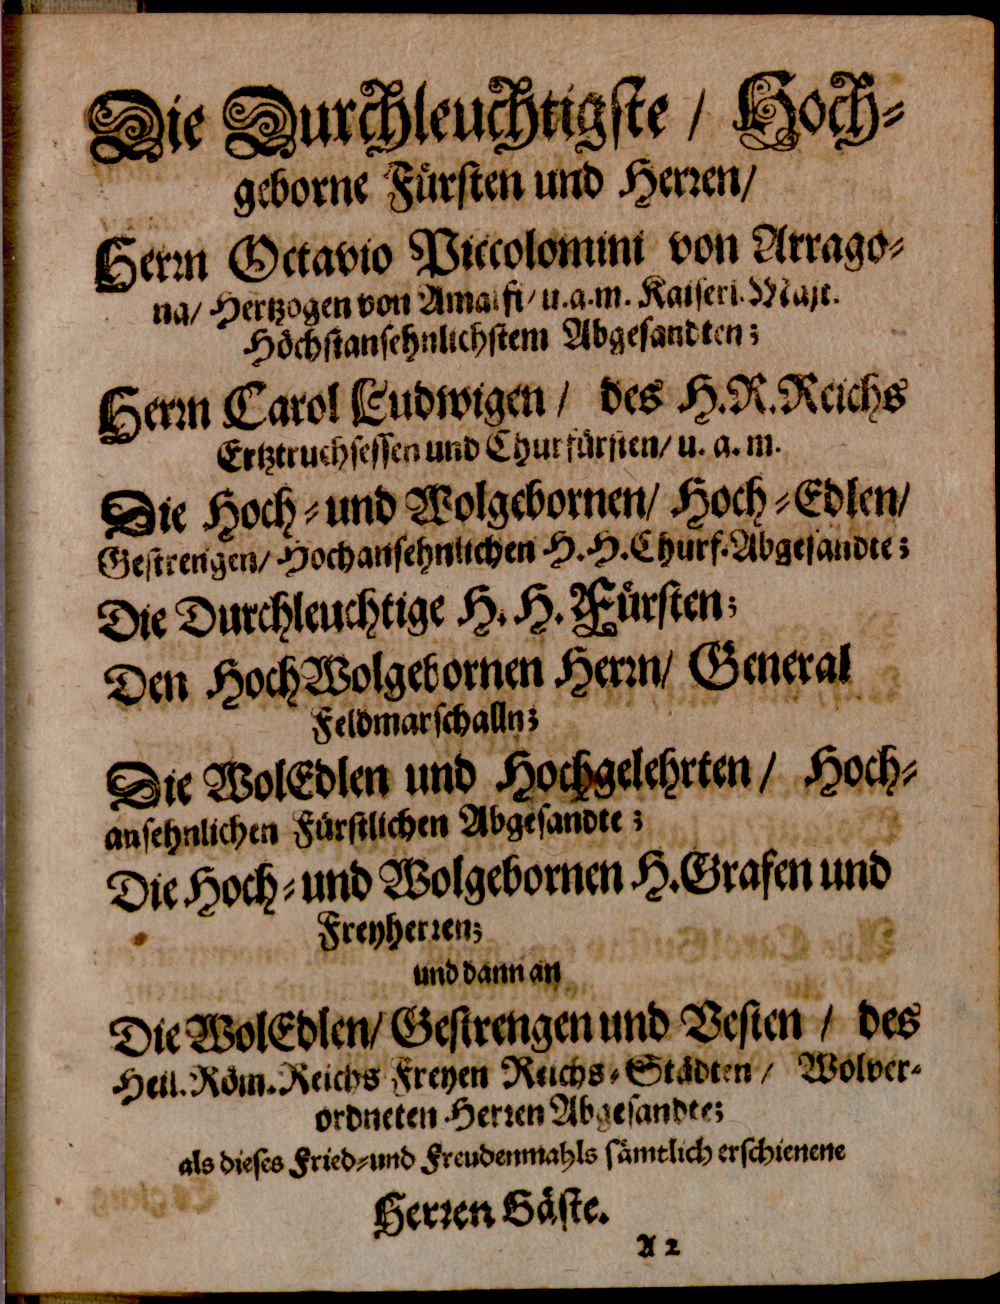 Die Durchleuchtigste / Hoch-
geborne Fürsten und Herren/
Herrn Octavio Piccolomini von Arrago-
na/ Hertzogen von Amalfi/ u.a.m. Kaiserl. Majt.
Höchstansehnlichstem Abgesandten;
Herrn Carol Ludwigen / des H.R.Reichs
Ertztruchsessen und Churfürsten/ u. a. m.
Die Hoch- und Wolgebornen/ Hoch-Edlen/
Gestrengen/ Hochansehnlichen H.H.Churf.Abgesandte;
Die Durchleuchtige H. H. Fürsten;
Den HochWolgebornen Herrn/ General
Feldmarschalln;
Die WolEdlen und Hochgelehrten / Hoch-
ansehnlichen Fürstlichen Abgesandte;
Die Hoch- und Wolgebornen H.Grafen und
Freyherren;
und dann an
Die WolEdlen/ Gestrengen und Vesten / des
Heil. Röm. Reichs Freyen Reichs-Städten / Wolver-
ordneten Herren Abgesandte;
als dieses Fried-und Freudenmahls sämtlich erschienene
Herren Gäste.
A 2